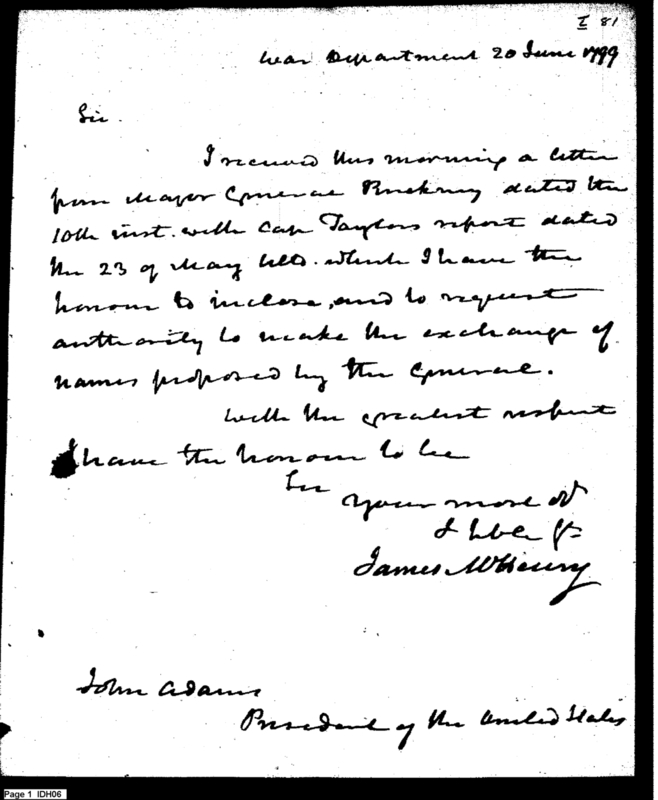 I 81
War Department 20 June 1799
Sir.
I received this morning a letter
from Major General Pinckney dated the
10th inst. with Cap Taylors report dated
the 23 of May ulto. which I have the
honour to inclose, and to request
authority to make the exchange of
names proposed by the General.
With the greatest respect
I have the honour to be
Sir
Your most ob
James McHenry
John Adams
President of the United States
Page 1 IDH06